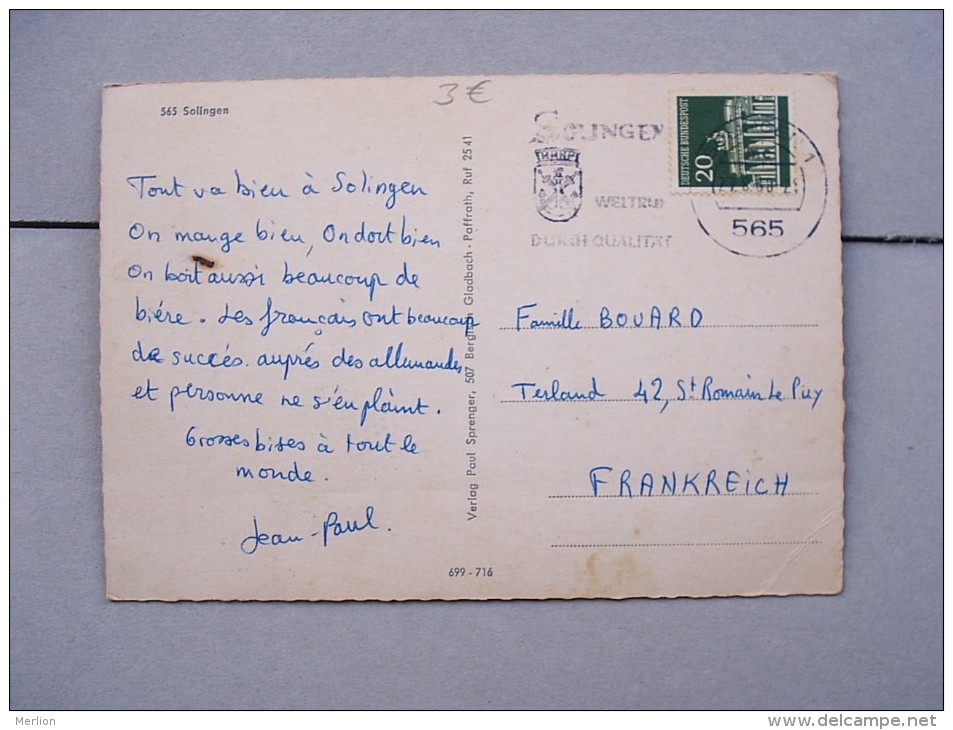 3 €
565 Solingen
SOLINGEN
WELTRUF
DURCH QUALITÄT
DEUTSCHE BUNDESPOST
20
1
565
Tout va bien à Solingen
On mange bien, On dort bien
On boit aussi beaucoup de
bière. Les français ont beaucoup
de succés auprés des allemandes
et personne ne s'en plaint.
Grosses bises à tout le
monde.
Jean-Paul.
Verlag Paul Sprenger, 507 Bergisch Gladbach - Paffrath, Ruf 25 41
Famille BOUARD
Terland 42, St Romain Le Puy
FRANKREICH
699 - 716
Merlion
http://www.delcampe.net